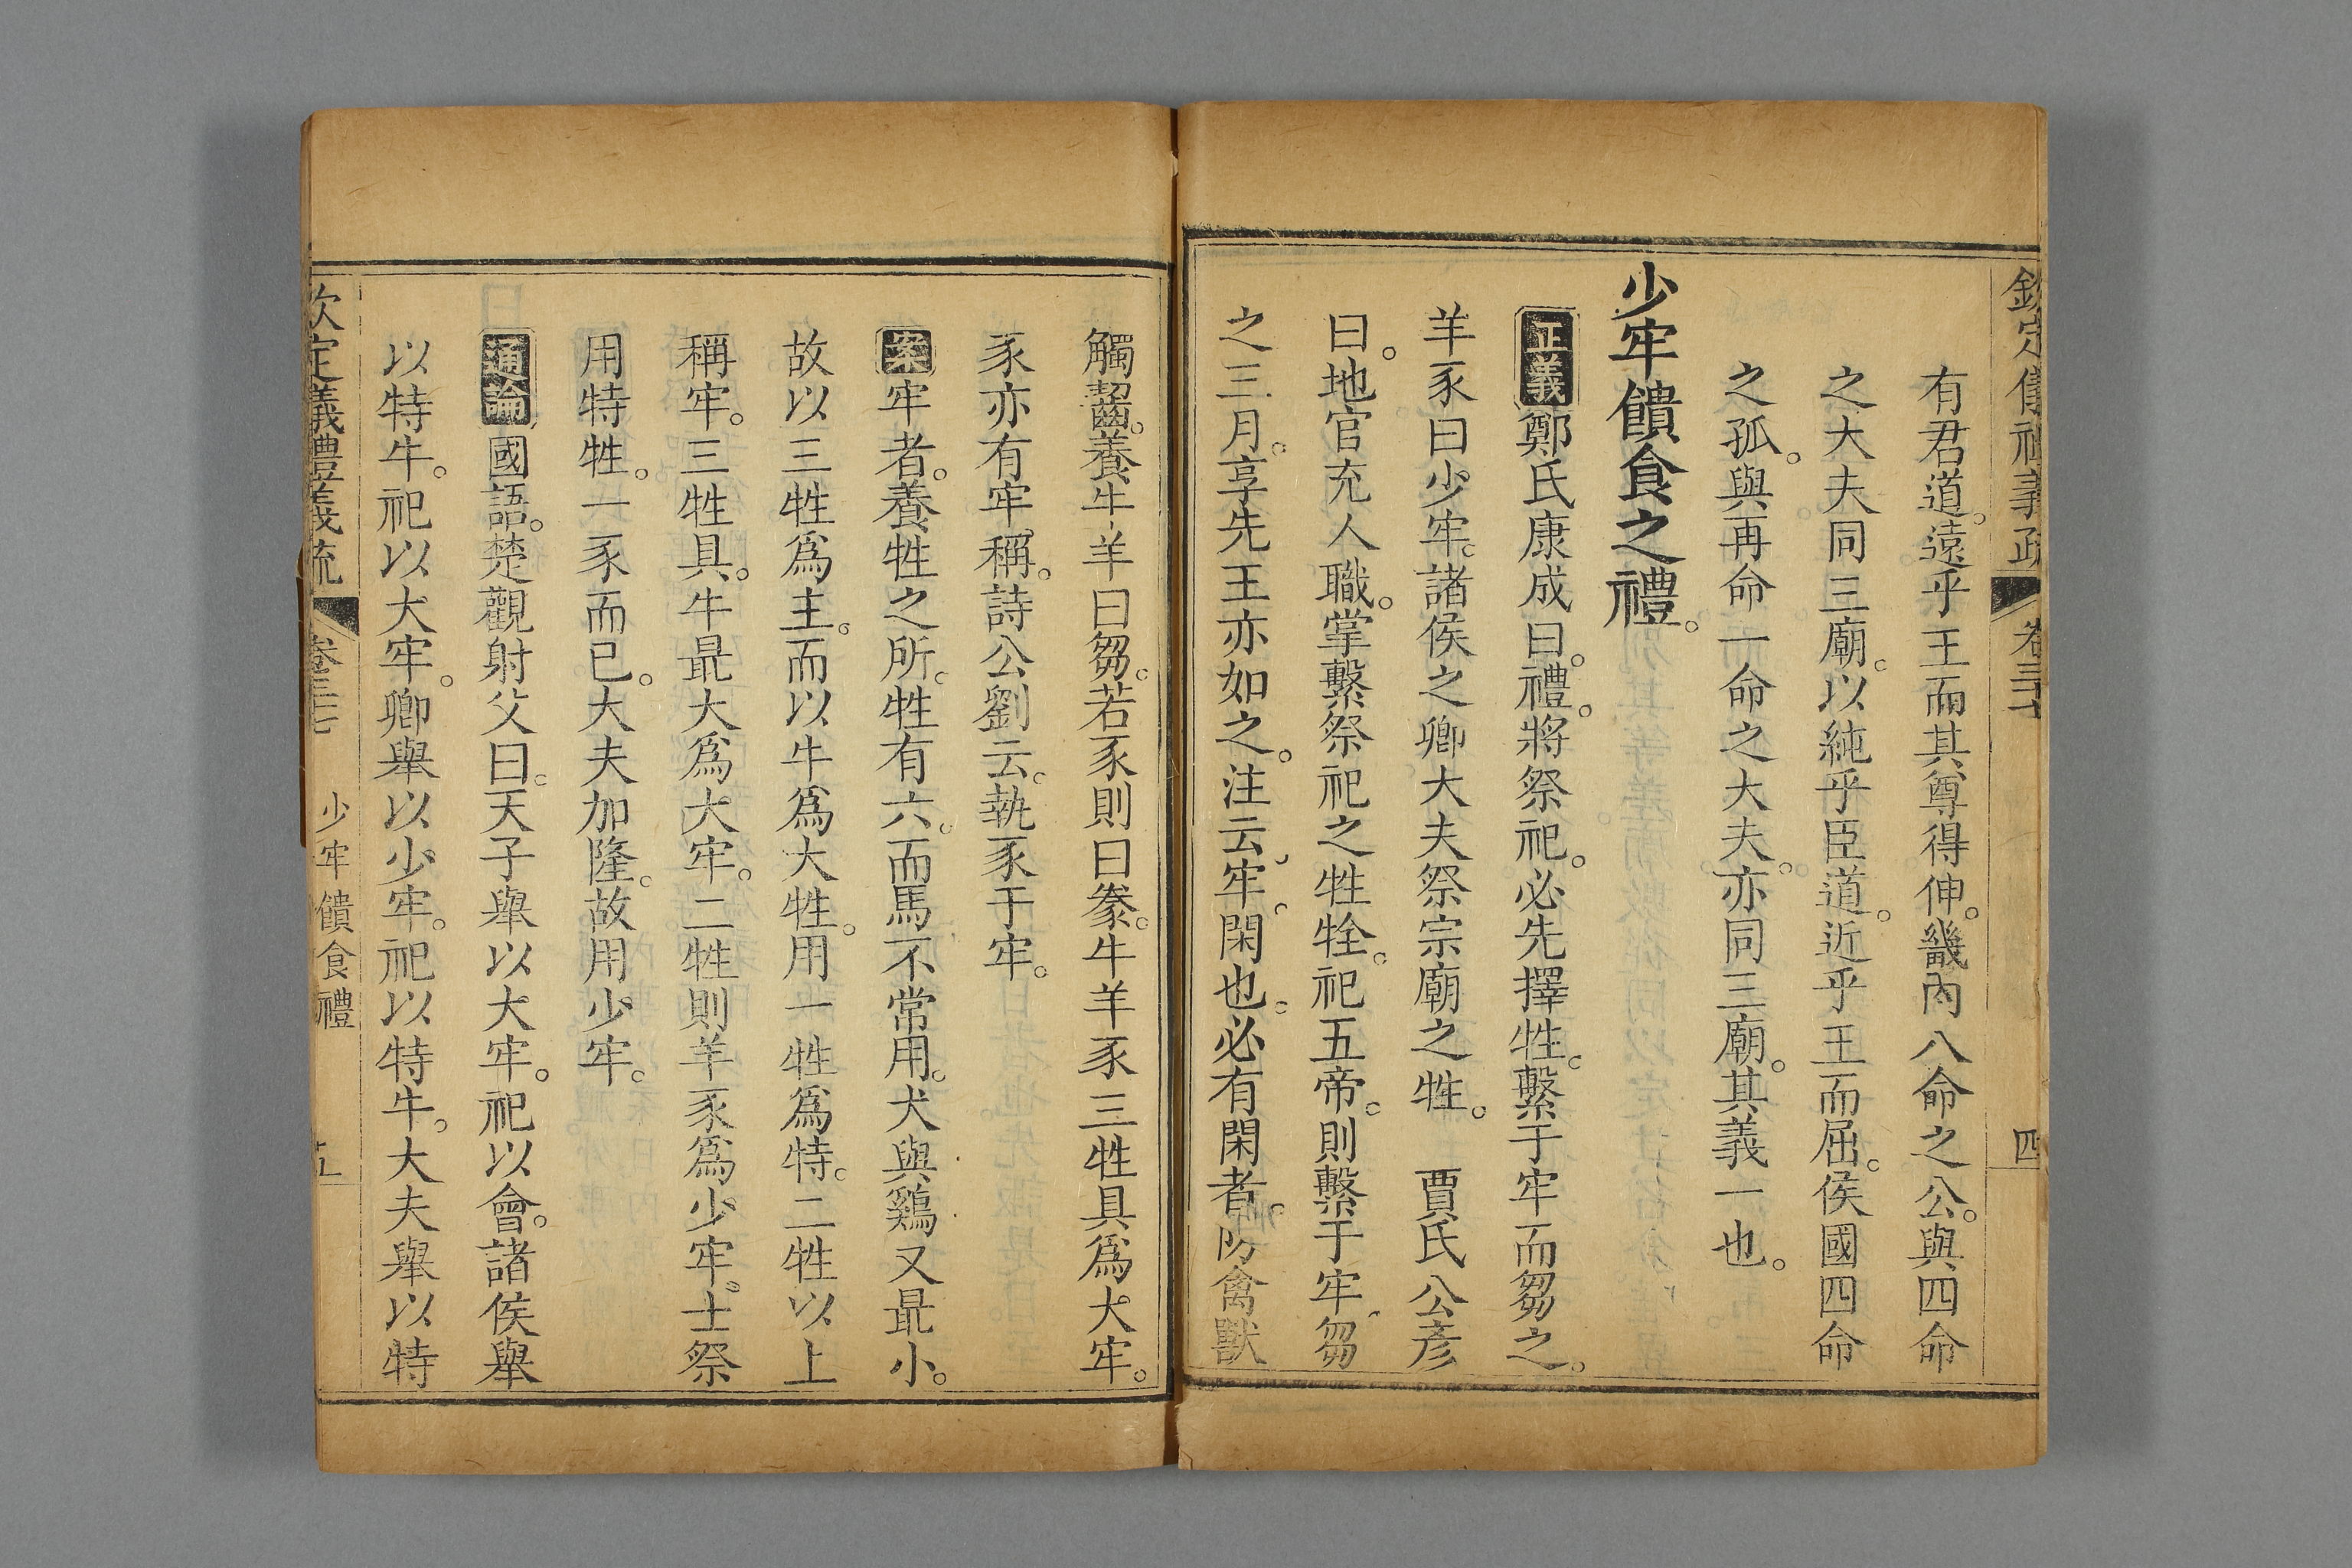 欽定儀禮義疏 卷三十七 四
有君道。遠乎王而其尊得伸。畿內八命之公。與四命
之大夫同三廟。以純乎臣道。近乎王而屈。侯國四命
之孤。與再命一命之大夫。亦同三廟。其義一也。
少牢饋食之禮。
正義鄭氏康成曰。禮。將祭祀。必先擇牲。繫于牢而芻之。
羊豕曰少牢。諸侯之卿大夫祭宗廟之牲。 賈氏公彥
曰。地官充人職。掌繫祭祀之牲牷。祀五帝。則繫于牢。芻
之三月。享先王亦如之。注云。牢。閑也。必有閑者。防禽獸
觸齧。養牛羊曰芻。若豕則曰豢。牛羊豕三牲具爲大牢。
豕亦有牢稱。詩公劉云。執豕于牢。
案牢者。養牲之所。牲有六。而馬不常用。犬與鷄又最小。
故以三牲爲主。而以牛爲大牲。用一牲爲特。二牲以上
稱牢。三牲具。牛最大爲大牢。二牲則羊豕爲少牢。士祭
用特牲。一豕而已。大夫加隆。故用少牢。
通論國語。楚觀射父曰。天子舉以大牢。祀以會。諸侯舉
以特牛。祀以大牢。卿舉以少牢。祀以特牛。大夫舉以特
欽定儀禮義疏 卷三十七 少牢饋食禮 五